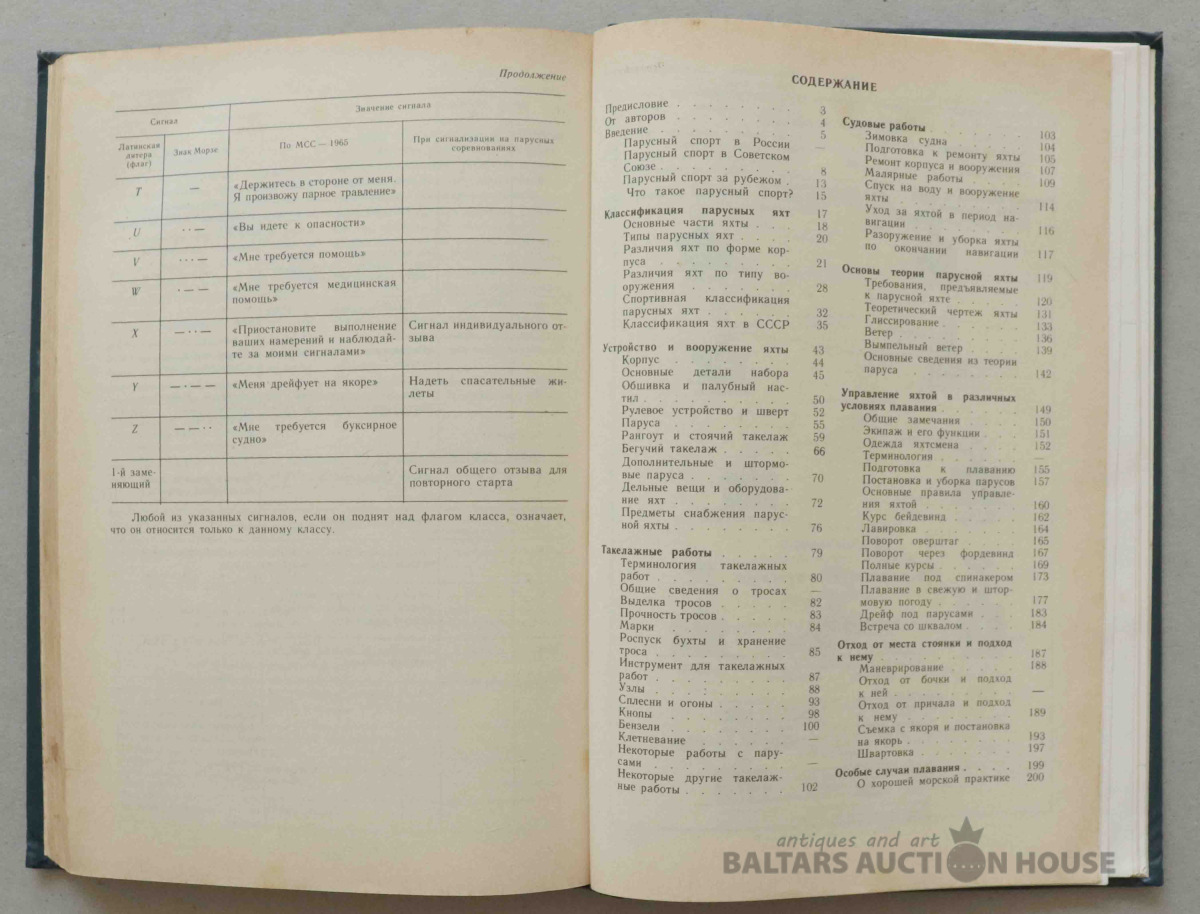 Продолжение
Сигнал
Значение сигнала
Латинская литера (флаг)
Знак Морзе
По МСС — 1965
При сигнализации на парусных соревнованиях
T
—
«Держитесь в стороне от меня.
Я произвожу парное травление»
U
· · —
«Вы идете к опасности»
V
· · · —
«Мне требуется помощь»
W
· — —
«Мне требуется медицинская
помощь»
X
— · · —
«Приостановите выполнение
ваших намерений и наблюдай-
те за моими сигналами»
Сигнал индивидуального от-
зыва
Y
— · — —
«Меня дрейфует на якоре»
Надеть спасательные жи-
леты
Z
— — · ·
«Мне требуется буксирное
судно»
1-й заме-
няющий
Сигнал общего отзыва для
повторного старта
Любой из указанных сигналов, если он поднят над флагом класса, означает,
что он относится только к данному классу.
СОДЕРЖАНИЕ
Предисловие . . . . . . . . 3
От авторов . . . . . . . . 4
Введение . . . . . . . . 5
Парусный спорт в России —
Парусный спорт в Советском
Союзе . . . . . . . . 8
Парусный спорт за рубежом . 13
Что такое парусный спорт? 15
Классификация парусных яхт 17
Основные части яхты . . . 18
Типы парусных яхт . . . . 20
Различия яхт по форме кор-
пуса . . . . . . . . 21
Различия яхт по типу во-
оружения . . . . . . . 28
Спортивная классификация
парусных яхт . . . . . . 32
Классификация яхт в СССР 35
Устройство и вооружение яхты 43
Корпус . . . . . . . . 44
Основные детали набора 45
Обшивка и палубный нас-
тил . . . . . . . . . 50
Рулевое устройство и шверт 52
Паруса . . . . . . . . 55
Рангоут и стоячий такелаж 59
Бегучий такелаж . . . . . 66
Дополнительные и штормо-
вые паруса . . . . . . . 70
Дельные вещи и оборудова-
ние яхт . . . . . . . . 72
Предметы снабжения парус-
ной яхты . . . . . . . 76
Такелажные работы . . . . . 79
Терминология такелажных
работ . . . . . . . . 80
Общие сведения о тросах —
Выделка тросов . . . . . 82
Прочность тросов . . . . . 83
Марки . . . . . . . . 84
Роспуск бухты и хранение
троса . . . . . . . . . 85
Инструмент для такелажных
работ . . . . . . . . 87
Узлы . . . . . . . . 88
Сплесни и огоны . . . . . 93
Кнопы . . . . . . . . 98
Бензели . . . . . . . . 100
Клетневание . . . . . . —
Некоторые работы с пару-
сами . . . . . . . . —
Некоторые другие такелаж-
ные работы . . . . . . . 102
Судовые работы . . . . . . 103
Зимовка судна . . . . . 104
Подготовка к ремонту яхты 105
Ремонт корпуса и вооружения 107
Малярные работы . . . . 109
Спуск на воду и вооружение
яхты . . . . . . . . 114
Уход за яхтой в период на-
вигации . . . . . . . 116
Разоружение и уборка яхты
по окончании навигации 117
Основы теории парусной яхты 119
Требования, предъявляемые
к парусной яхте . . . . . 120
Теоретический чертеж яхты 131
Глиссирование . . . . . . 133
Ветер . . . . . . . . 136
Вымпельный ветер . . . . 139
Основные сведения из теории
паруса . . . . . . . . 142
Управление яхтой в различных
условиях плавания . . . . . 149
Общие замечания . . . . 150
Экипаж и его функции . . . 151
Одежда яхтсмена . . . . . 152
Терминология . . . . . . —
Подготовка к плаванию 155
Постановка и уборка парусов 157
Основные правила управле-
ния яхтой . . . . . . . 160
Курс бейдевинд . . . . . 162
Лавировка . . . . . . . 164
Поворот оверштаг . . . . 165
Поворот через фордевинд 167
Полные курсы . . . . . . 169
Плавание под спинакером 173
Плавание в свежую и штор-
мовую погоду . . . . . . 177
Дрейф под парусами . . . . 183
Встреча со шквалом . . . . 184
Отход от места стоянки и подход
к нему . . . . . . . . 187
Маневрирование . . . . . 188
Отход от бочки и подход
к ней . . . . . . . . —
Отход от причала и подход
к нему . . . . . . . . 189
Съемка с якоря и постановка
на якорь . . . . . . . 193
Швартовка . . . . . . . 197
Особые случаи плавания . . . . 199
О хорошей морской практике 200
antiques and art
BALTARS AUCTION HOUSE